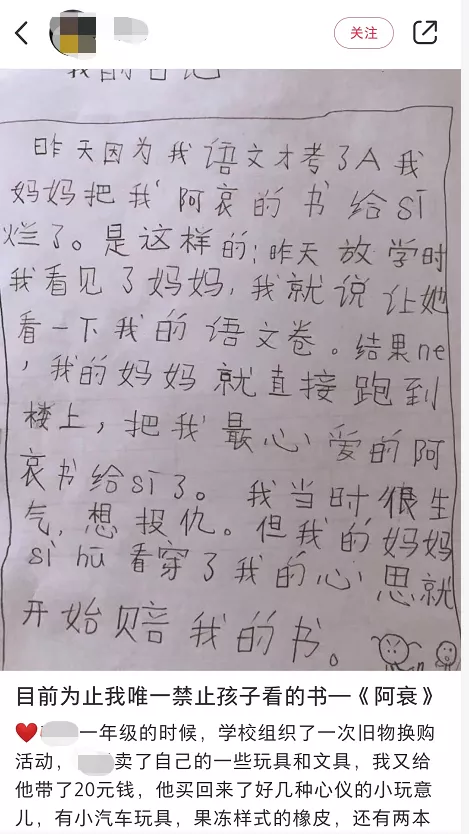 关注
我的日记
昨天因为我语文才考了A我
妈妈把我阿衰的书给sī
烂了。是这样的:昨天放学时
我看见了妈妈,我就说让她
看一下我的语文卷。结果ne
,我的妈妈就直接跑到
楼上,把我最心爱的阿
衰书给sī了。我当时很生
气,想报仇。但我的妈妈
sì hū看穿了我的心思就
开始赔我的书。
目前为止我唯一禁止孩子看的书—《阿衰》
一年级的时候,学校组织了一次旧物换购
活动,卖了自己的一些玩具和文具,我又给
他带了20元钱,他买回来了好几种心仪的小玩意
儿,有小汽车玩具,果冻样式的橡皮,还有两本